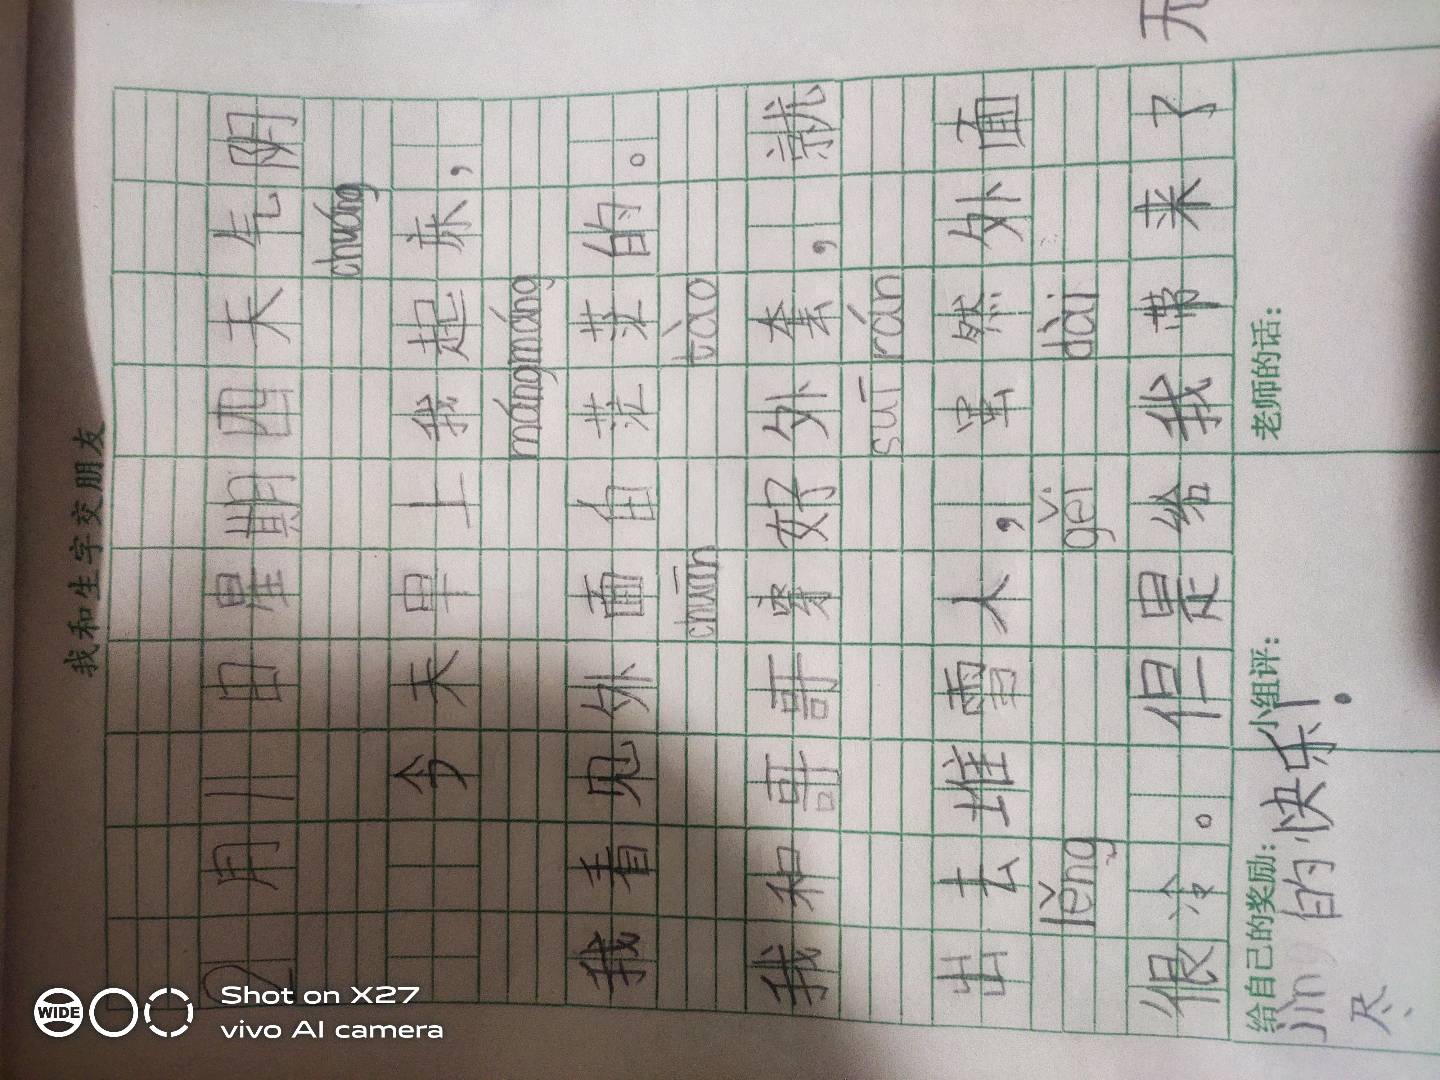 我和生字交朋友
2月11日星期四天气阴
chuáng
今天早上我起床，
mángmáng
我看见外面白茫茫的。
chuān tào
我和哥哥穿好外套，就
suī rán
出去堆雪人，虽然外面
lěng gěi dài
很冷。但是给我带来了
给自己的奖励： 小组评： 老师的话：
无
jìng的快乐！
尽
WIDE
Shot on X27
vivo AI camera